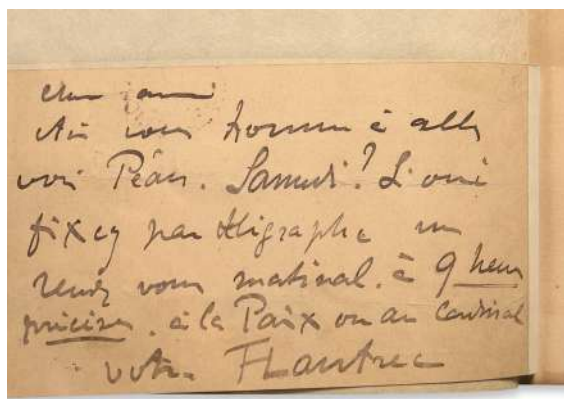 cher ami
êtes vous homme à aller
voir Péan. Samedi? Si oui
fixez par télégraphe un
rendez vous matinal. à 9 heures
précises. à la Paix ou au Cardinal
votre HLautrec